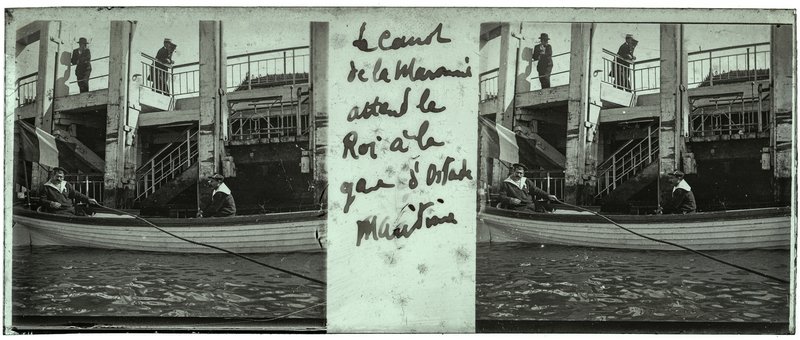 Le Canot
de la Maronie
attend le
Roi à la
gare d'Ostende
Maritime